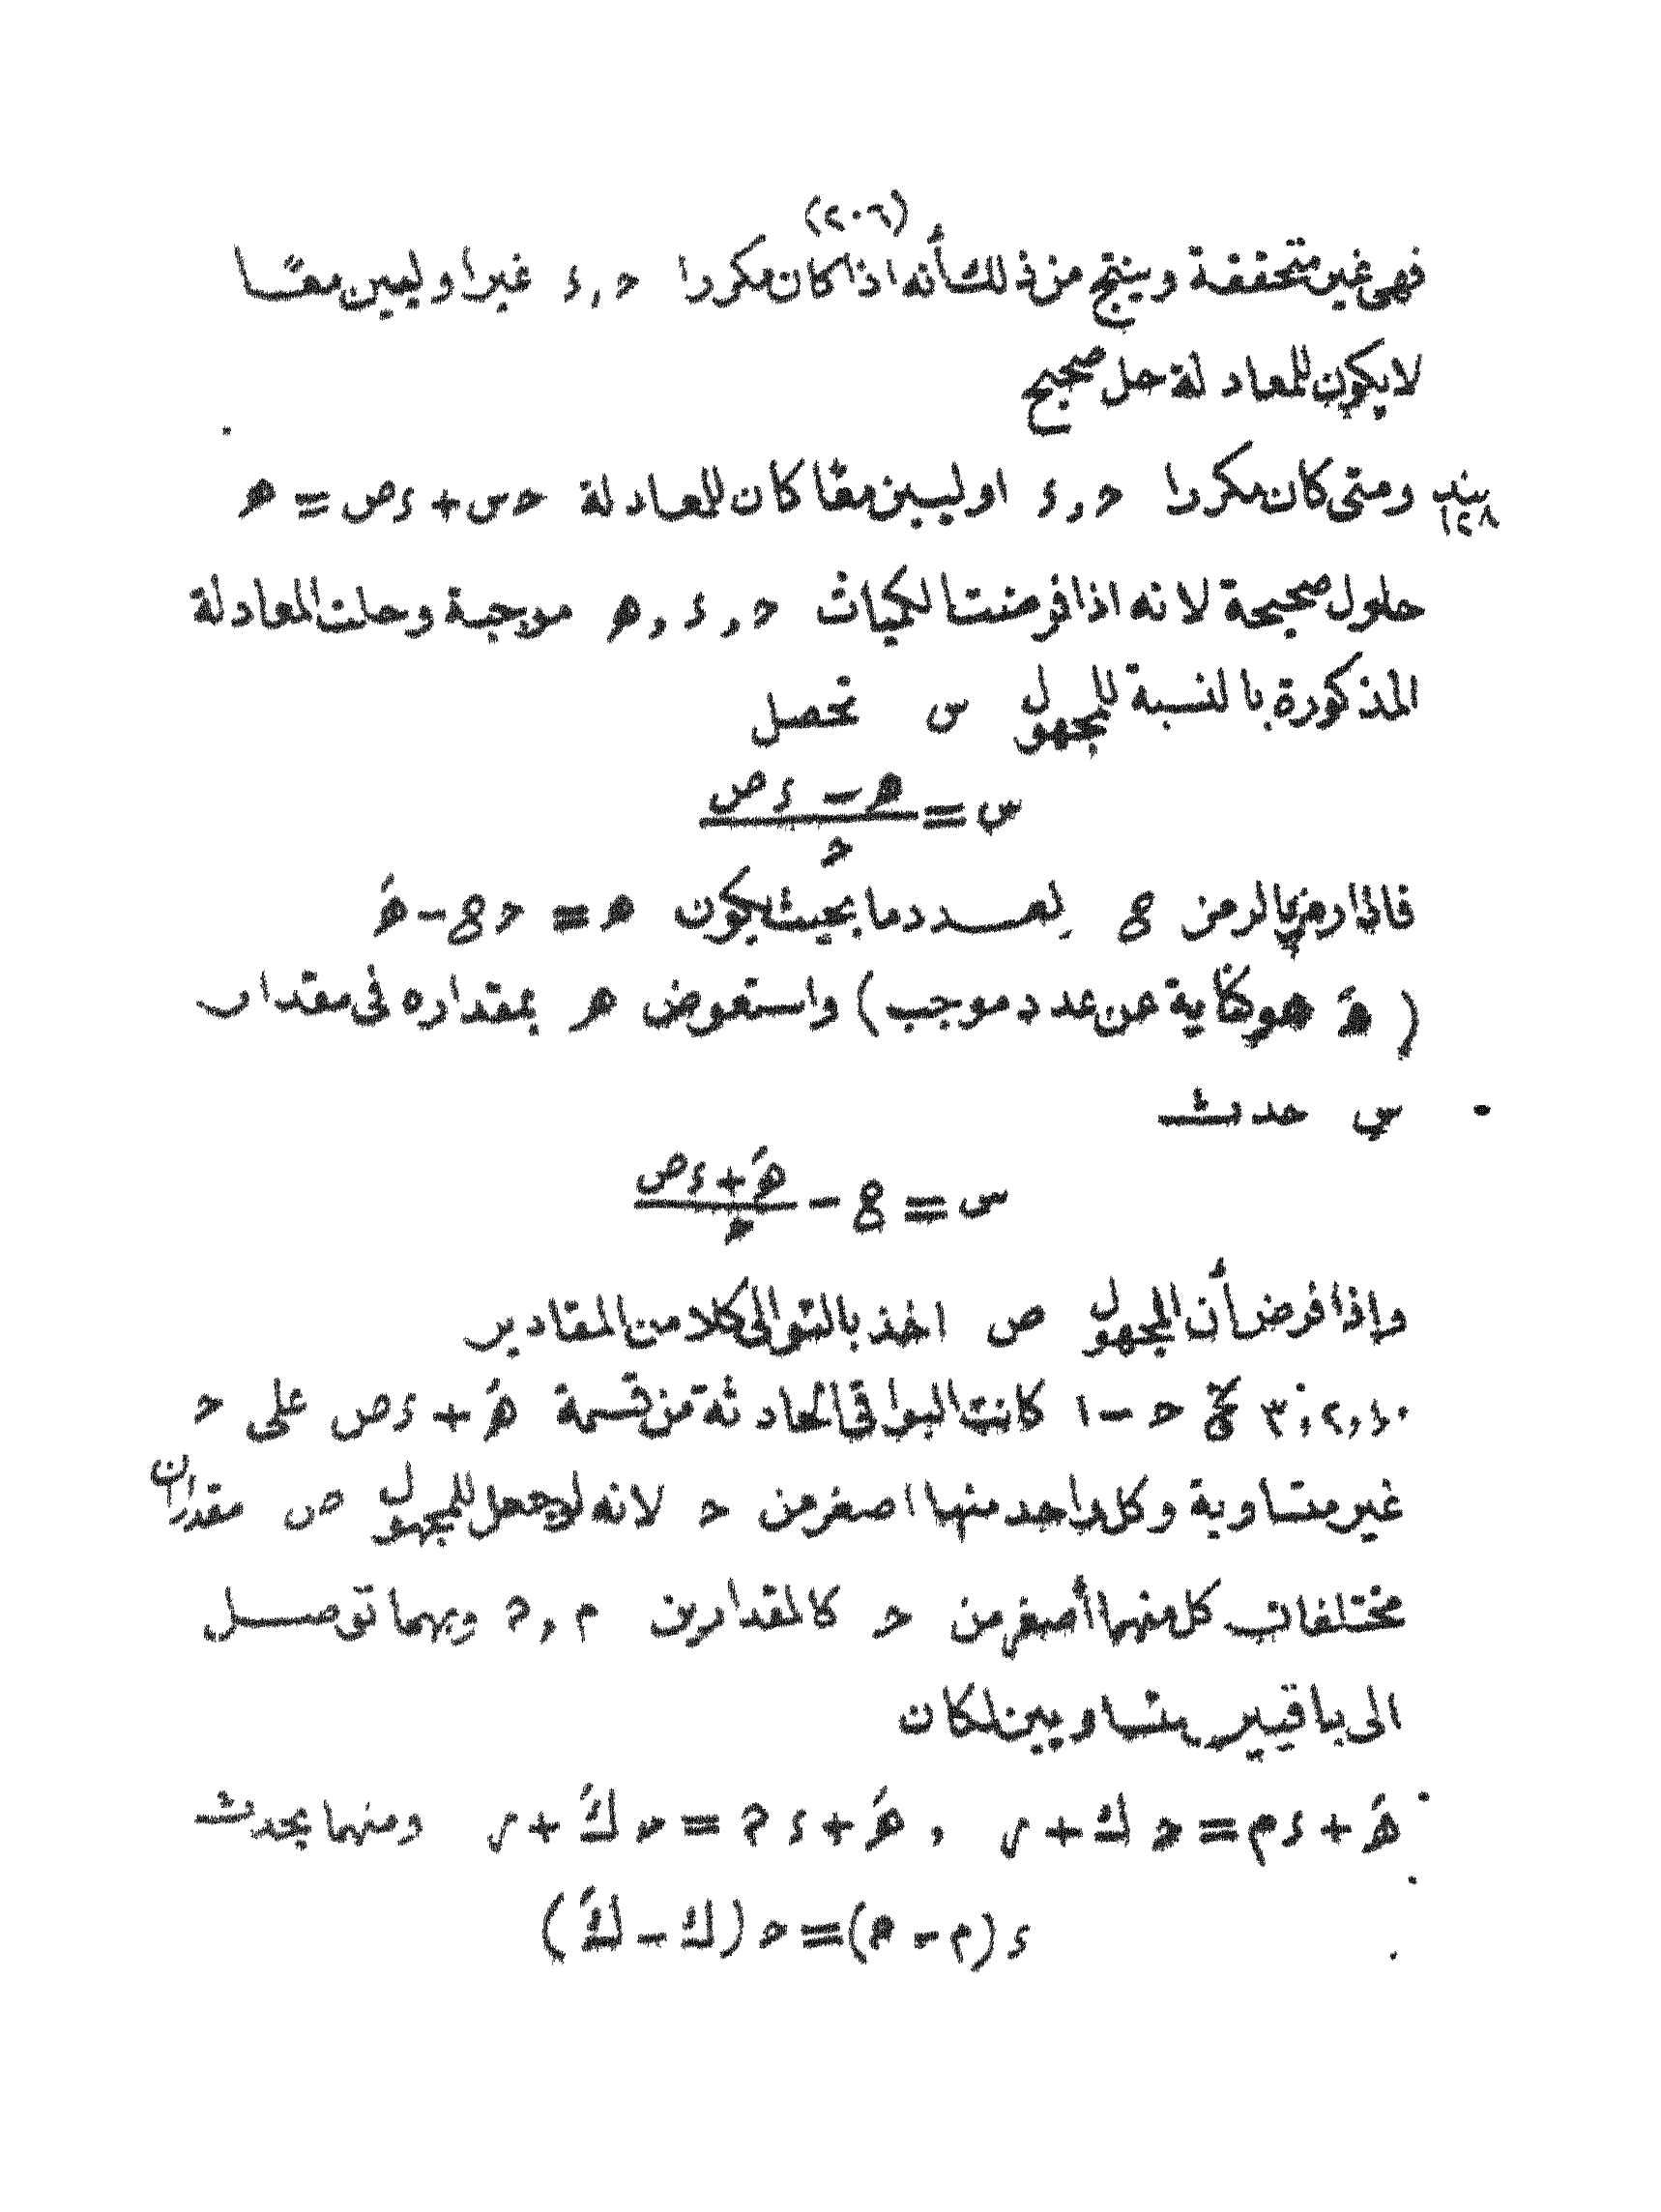 (٢٠٦)
فهى غير متحققة وينتج من ذلك أنه اذا كان مكررا حـ , ء غير اوليين معًا
لا يكون للمعادلة حل صحيح
بند ١٢٨ ومتى كان مكررا حـ , ء اوليين معًا كان للمعادلة حـ س + ء ص = هـ
حلول صحيحة لانه اذا فرضنت الكميات حـ , ء , هـ موجبة وحلت المعادلة
المذكورة بالنسبة للمجهول س تحصل
س = (هـ − ء ص) / حـ
فاذا رمز بالرمز ع لعدد ما بحيث يكون هـ = حـ ع − هـَ
( هـَ هو كناية عن عدد موجب ) واستعوض هـ بمقداره فى مقدار
س حدث
س = ع − (هـَ + ء ص) / حـ
وإذا فرض أن المجهول ص اخذ بالتوالى كلا من المقادير
٠ , ١ , ٢ , ٣ , الخ حـ − ١ كانت البواقى الحادثة من قسمة هـَ + ء ص على حـ
غير متساوية وكل واحد منها اصغر من حـ لانه لو جعل للمجهول ص مقداران
مختلفان كل منهما أصغر من حـ كالمقدارين م , مَ وبهما توصل
الى باقيين متساويين لكان
هـَ + ء م = حـ ك + ر , هـَ + ء مَ = حـ كَ + ر ومنهما يحدث
ء (م − مَ) = حـ (ك − كَ)